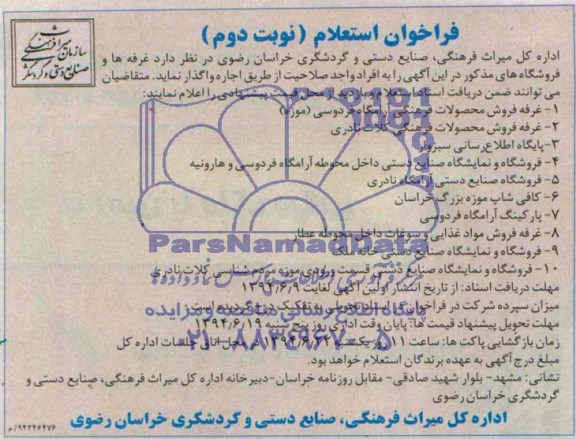 سازمان میراث فرهنگی
صنایع دستی و گردشگری
فراخوان استعلام (نوبت دوم)
اداره کل میراث فرهنگی، صنایع دستی و گردشگری خراسان رضوی در نظر دارد غرفه ها و
فروشگاه های مذکور در این آگهی را به افراد واجد صلاحیت از طریق اجاره واگذار نماید. متقاضیان
می توانند ضمن دریافت اسناد استعلام و بازدید از محل قیمت پیشنهادی را اعلام نمایند:
۱- غرفه فروش محصولات فرهنگی آرامگاه فردوسی (موزه)
۲- غرفه فروش محصولات فرهنگی کلات نادری
۳-پایگاه اطلاع رسانی سبزوار
۴- فروشگاه و نمایشگاه صنایع دستی داخل محوطه آرامگاه فردوسی و هارونیه
۵- فروشگاه صنایع دستی آرامگاه نادری
۶- کافی شاپ موزه بزرگ خراسان
۷- پارکینگ آرامگاه فردوسی
۸- غرفه فروش مواد غذایی و سوغات داخل محوطه عطار
۹- فروشگاه و نمایشگاه صنایع دستی خانه ملک
۱۰- فروشگاه و نمایشگاه صنایع دستی قسمت ورودی موزه مردم شناسی کلات نادری
مهلت دریافت اسناد: از تاریخ انتشار اولین آگهی لغایت ۱۳۹۴/۶/۹
میزان سپرده شرکت در فراخوان در اسناد تحویلی به تفکیک درج گردیده است.
مهلت تحویل پیشنهاد قیمت ها: پایان وقت اداری روز پنج شنبه ۱۳۹۴/۶/۱۹
زمان بازگشایی پاکت ها: ساعت ۱۱ روز یک ۱۳۹۴/۶/۲۲ محل اتاق جلسات اداره کل
مبلغ درج آگهی به عهده برندگان استعلام خواهد بود.
نشانی: مشهد- بلوار شهید صادقی- مقابل روزنامه خراسان-دبیرخانه اداره کل میراث فرهنگی، صنایع دستی و
گردشگری خراسان رضوی
اداره کل میراث فرهنگی، صنایع دستی و گردشگری خراسان رضوی
۹۴۲۴۶۴۷۶/م
ParsNamadData
پایگاه اطلاع رسانی مناقصه و مزایده
۰۲۱-۸۸۳۴۹۶۷۰-۵